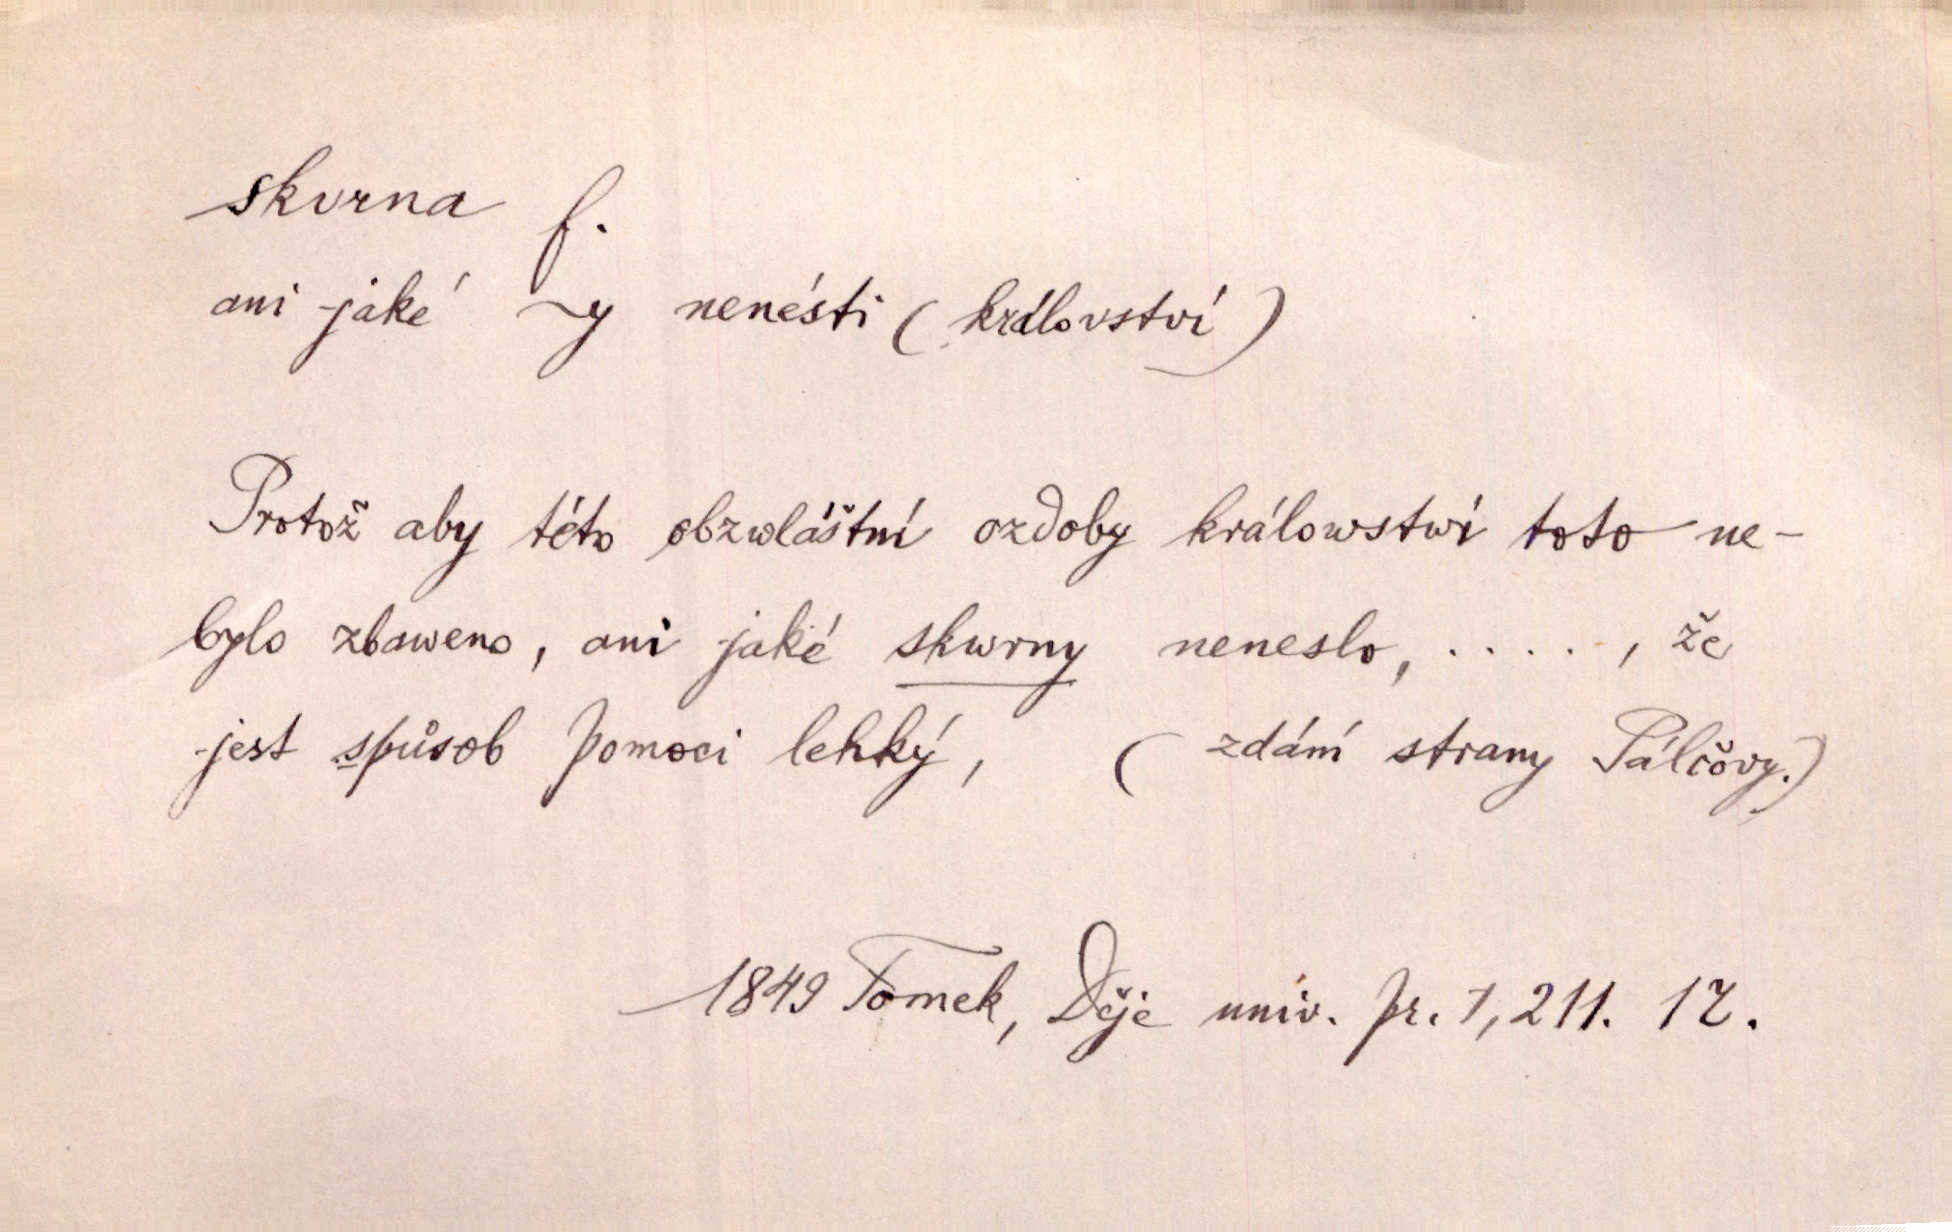 skvrna f.
ani jaké ~y nenésti (království)
Protož aby této obzwláštní ozdoby králowstwí toto ne-
bylo zbaweno, ani jaké skwrny neneslo, . . . . . , že
jest spůsob pomoci lehký, (zdání strany Pálčovy.)
1849 Tomek, Děje univ. pr. 1, 211. 12.